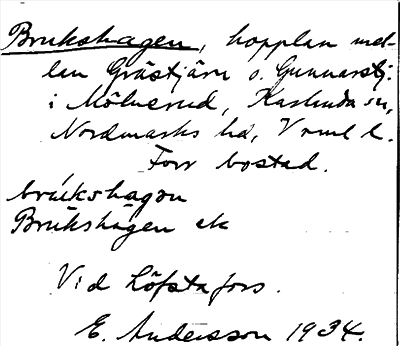 Brukshagen, hopplan mel-
lan Gråstjärn o. Gunnarstj.
i Mölnerud, Karlanda sn,
Nordmarks hd, Vrml l.
Forr bostad.
brúkshagọn
Brukshagen ek
Vid Löfstafors.
E. Andersson 1934.